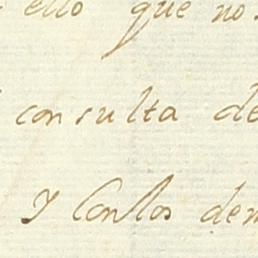 ello que no
consulta de
Y Con los dem